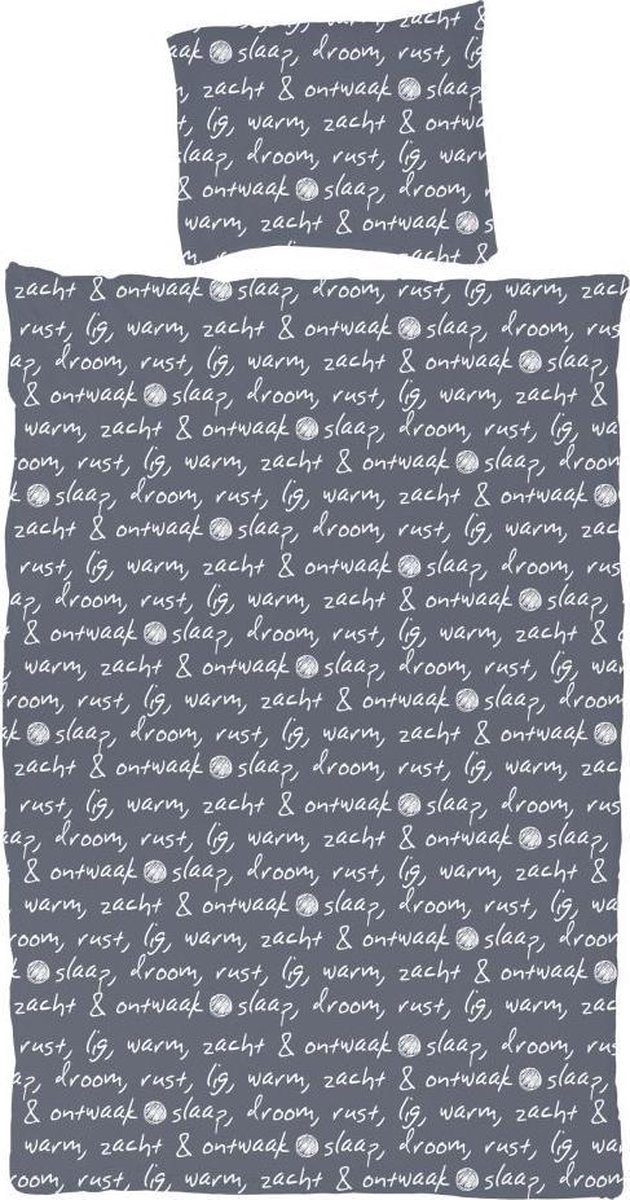 slaap, droom, rust, lig,
zacht & ontwaak slaap,
lig, warm, zacht & ontwa
slaap, droom, rust, lig, warm
& ontwaak slaap, droom,
warm, zacht & ontwaak s
zacht & ontwaak slaap, droom, rust, lig, warm, zach
rust, lig, warm, zacht & ontwaak slaap, droom, rus
ap, droom, rust, lig, warm, zacht & ontwaak slaap,
& ontwaak slaap, droom, rust, lig, warm, zacht &
warm, zacht & ontwaak slaap, droom, rust, lig, wa
oom, rust, lig, warm, zacht & ontwaak slaap, droom
k slaap, droom, rust, lig, warm, zacht & ontwaak
zacht & ontwaak slaap, droom, rust, lig, warm, zac
rust, lig, warm, zacht & ontwaak slaap, droom, rus
ap, droom, rust, lig, warm, zacht & ontwaak slaap,
& ontwaak slaap, droom, rust, lig, warm, zacht &
warm, zacht & ontwaak slaap, droom, rust, lig, war
room, rust, lig, warm, zacht & ontwaak slaap, droom
ak slaap, droom, rust, lig, warm, zacht & ontwaak
zacht & ontwaak slaap, droom, rust, lig, warm, zac
rust, lig, warm, zacht & ontwaak slaap, droom, rus
aap, droom, rust, lig, warm, zacht & ontwaak slaap,
& ontwaak slaap, droom, rust, lig, warm, zacht &
warm, zacht & ontwaak slaap, droom, rust, lig, wa
room, rust, lig, warm, zacht & ontwaak slaap, droom
k slaap, droom, rust, lig, warm, zacht & ontwaak
zacht & ontwaak slaap, droom, rust, lig, warm, zac
rust, lig, warm, zacht & ontwaak slaap, droom, rus
ap, droom, rust, lig, warm, zacht & ontwaak slaap,
& ontwaak slaap, droom, rust, lig, warm, zacht &
warm, zacht & ontwaak slaap, droom, rust, lig, wa
room, rust, lig, warm, zacht & ontwaak slaap, droom